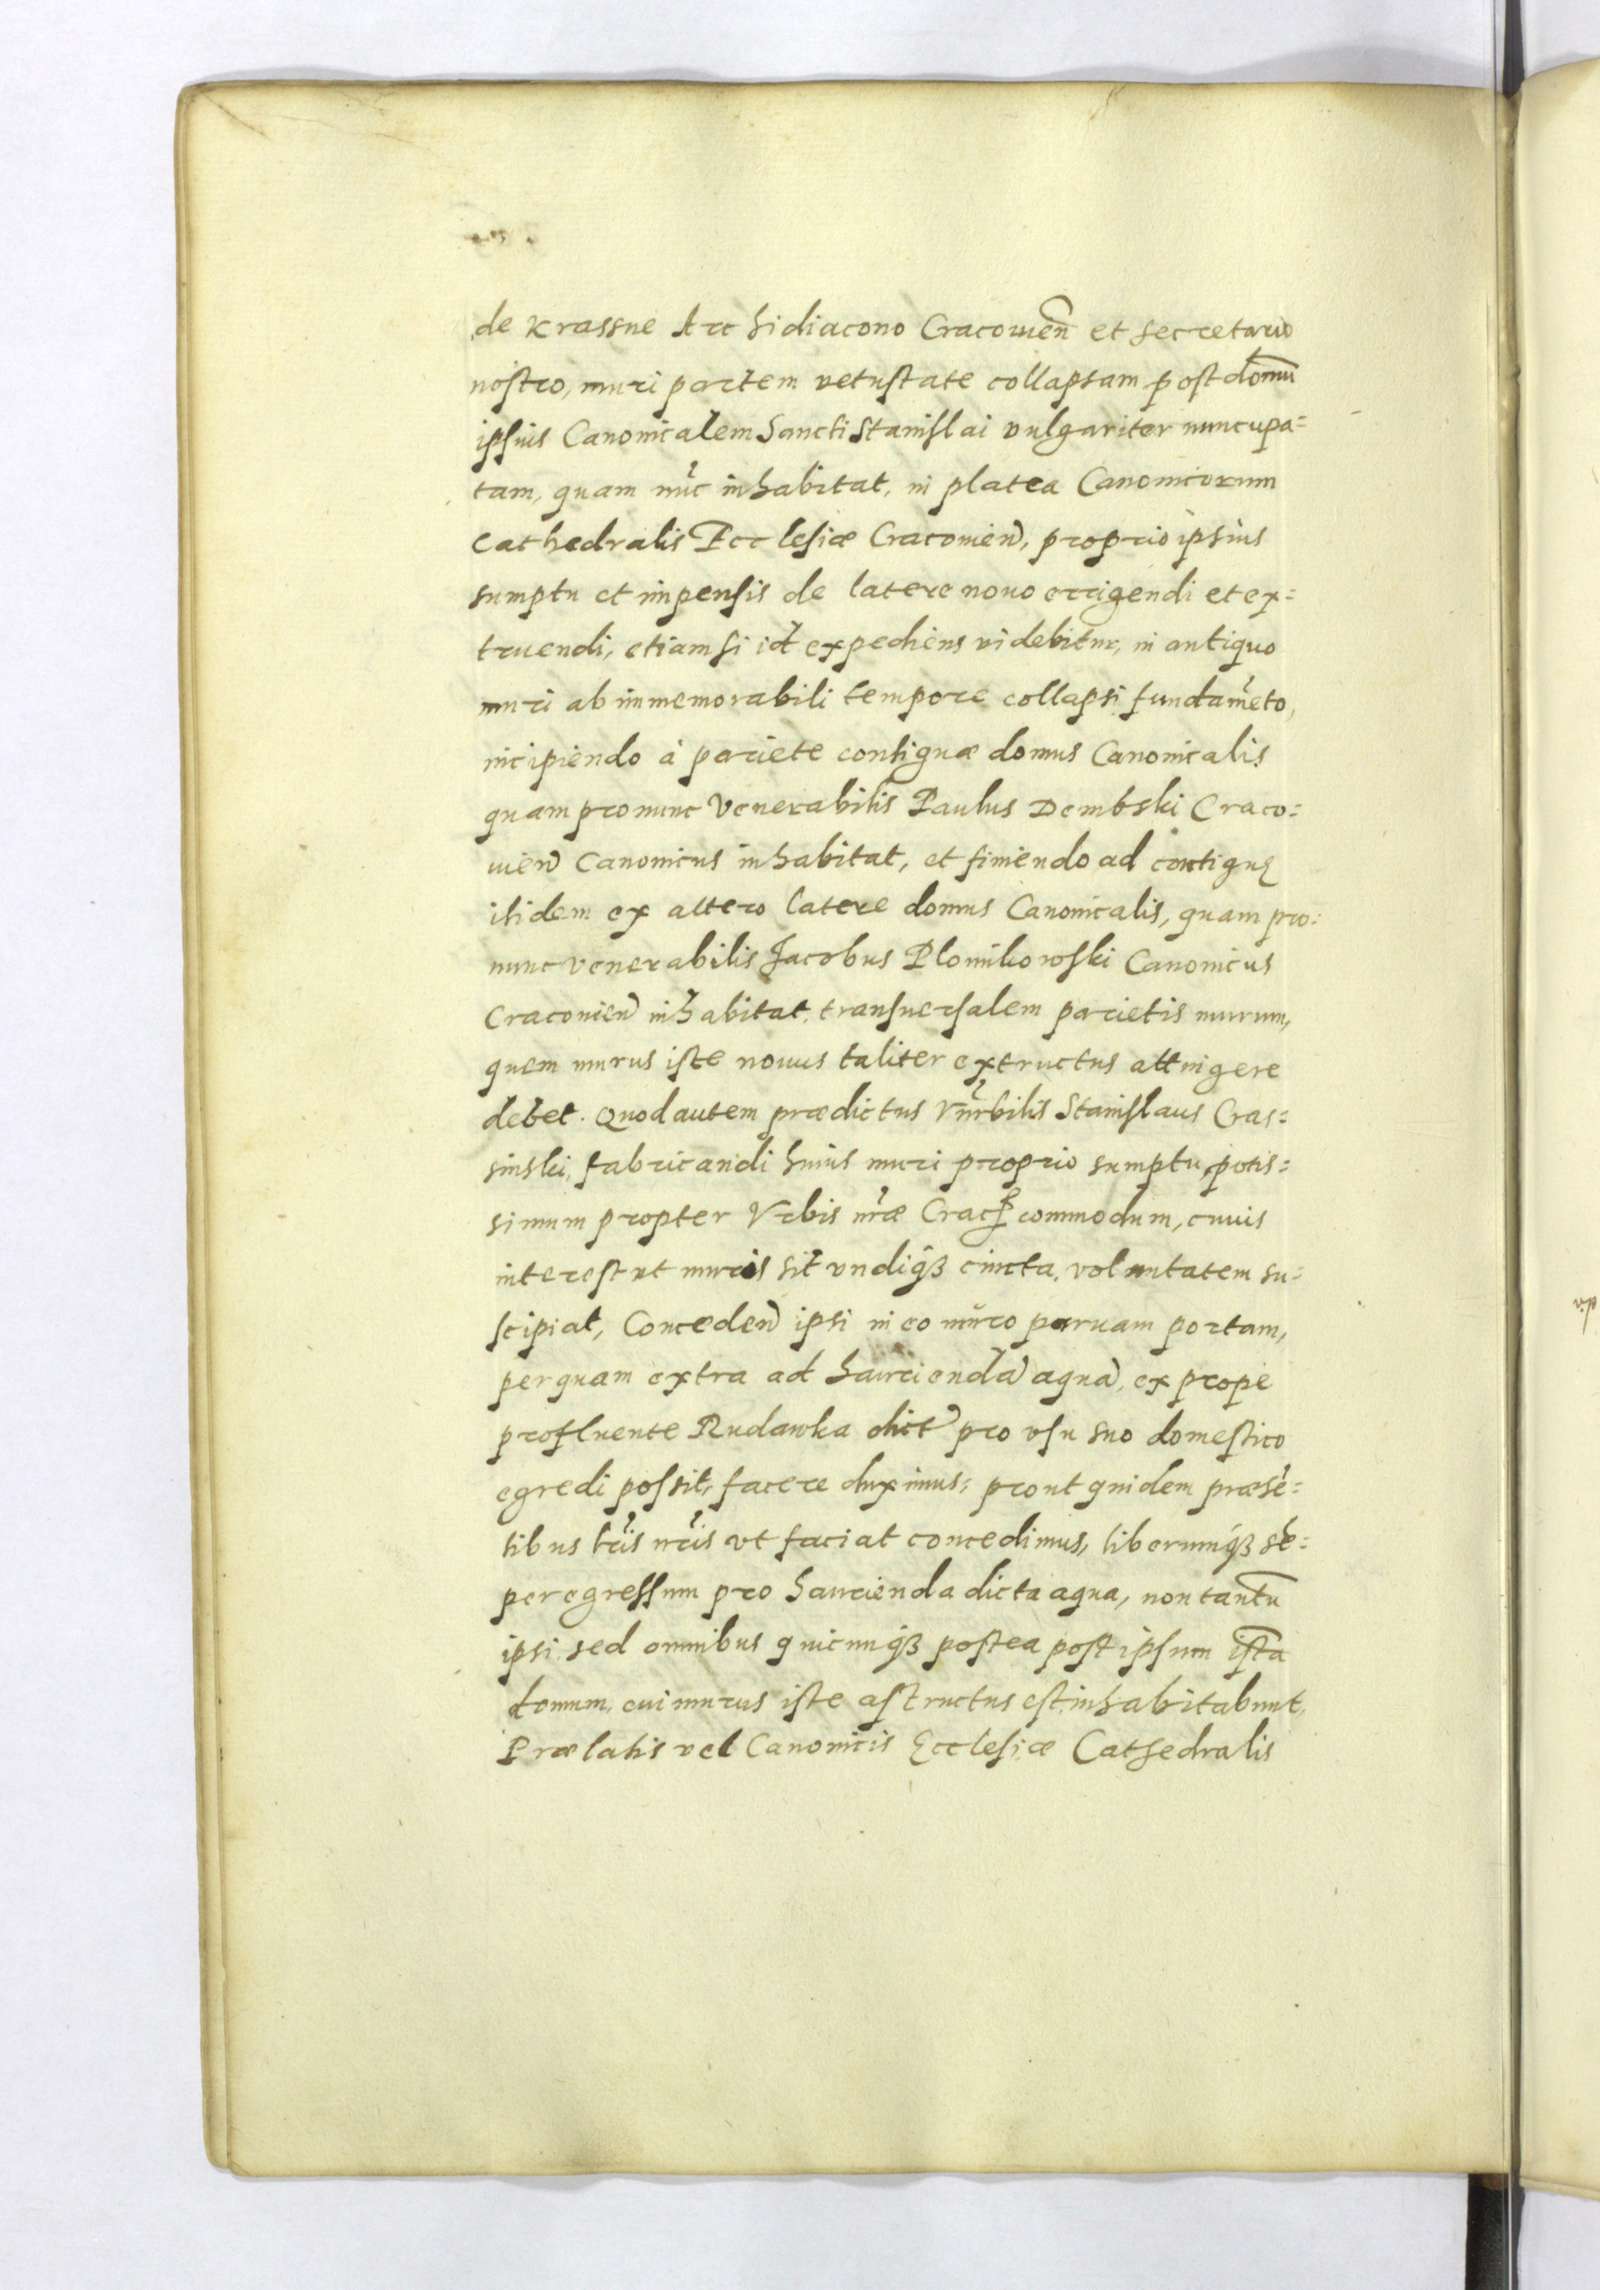 de Krassne Archidiacono Cracouieñ et secretario
nostro, muri partem vetustate collapsam post domũ
ipsius Canonicalem Sancti Stanislai vulgariter nuncupa=
tam, quam nũc inhabitat, in platea Canonicorum
Cathedralis Ecclesiæ Cracouieñ, proprio ipsius
sumptu et impensis de latere nouo errigendi et ex=
truendi, etiam si id expediens videbitur, in antiquo
muri ab immemorabili tempore collapsi fundamẽto,
incipiendo à pariete contiguæ domus Canonicalis
quam pro nunc Venerabilis Paulus Dembski Craco=
uieñ Canonicus inhabitat, et finiendo ad contiguę
itidem ex altero latere domus Canonicalis, quam pro=
nunc venerabilis Jacobus Plomikowski Canonicus
Cracouieñ inhabitat, transuersalem parietis murum,
quem murus iste nouus taliter extructus attingere
debet. Quod autem prædictus Vñrbilis Stanislaus Cras=
sinski, fabricandi huius muri proprio sumptu, potis=
simum propter Vrbis nr̃æ Crac̃ commodum, cuuis
interest vt muris sit vndiqꝫ cincta, voluntatem su=
scipiat, Concedeñ ipsi in eo muro paruam portam,
per quam extra ad hauriendã aquã, ex prope
profluente Rudawka dict̃ pro vsu suo domestico
egredi possit, facere duximus, prout quidem præsẽ=
tibus lr̃is nr̃is vt faciat concedimus, liberumqꝫ sẽ=
per egressum pro haurienda dicta aqua, non tantũ
ipsi, sed omnibus quicunqꝫ postea post ipsum istã
domum, cui murus iste astructus est, inhabitabunt,
Prælatis vel Canonicis Ecclesiæ Cathedralis